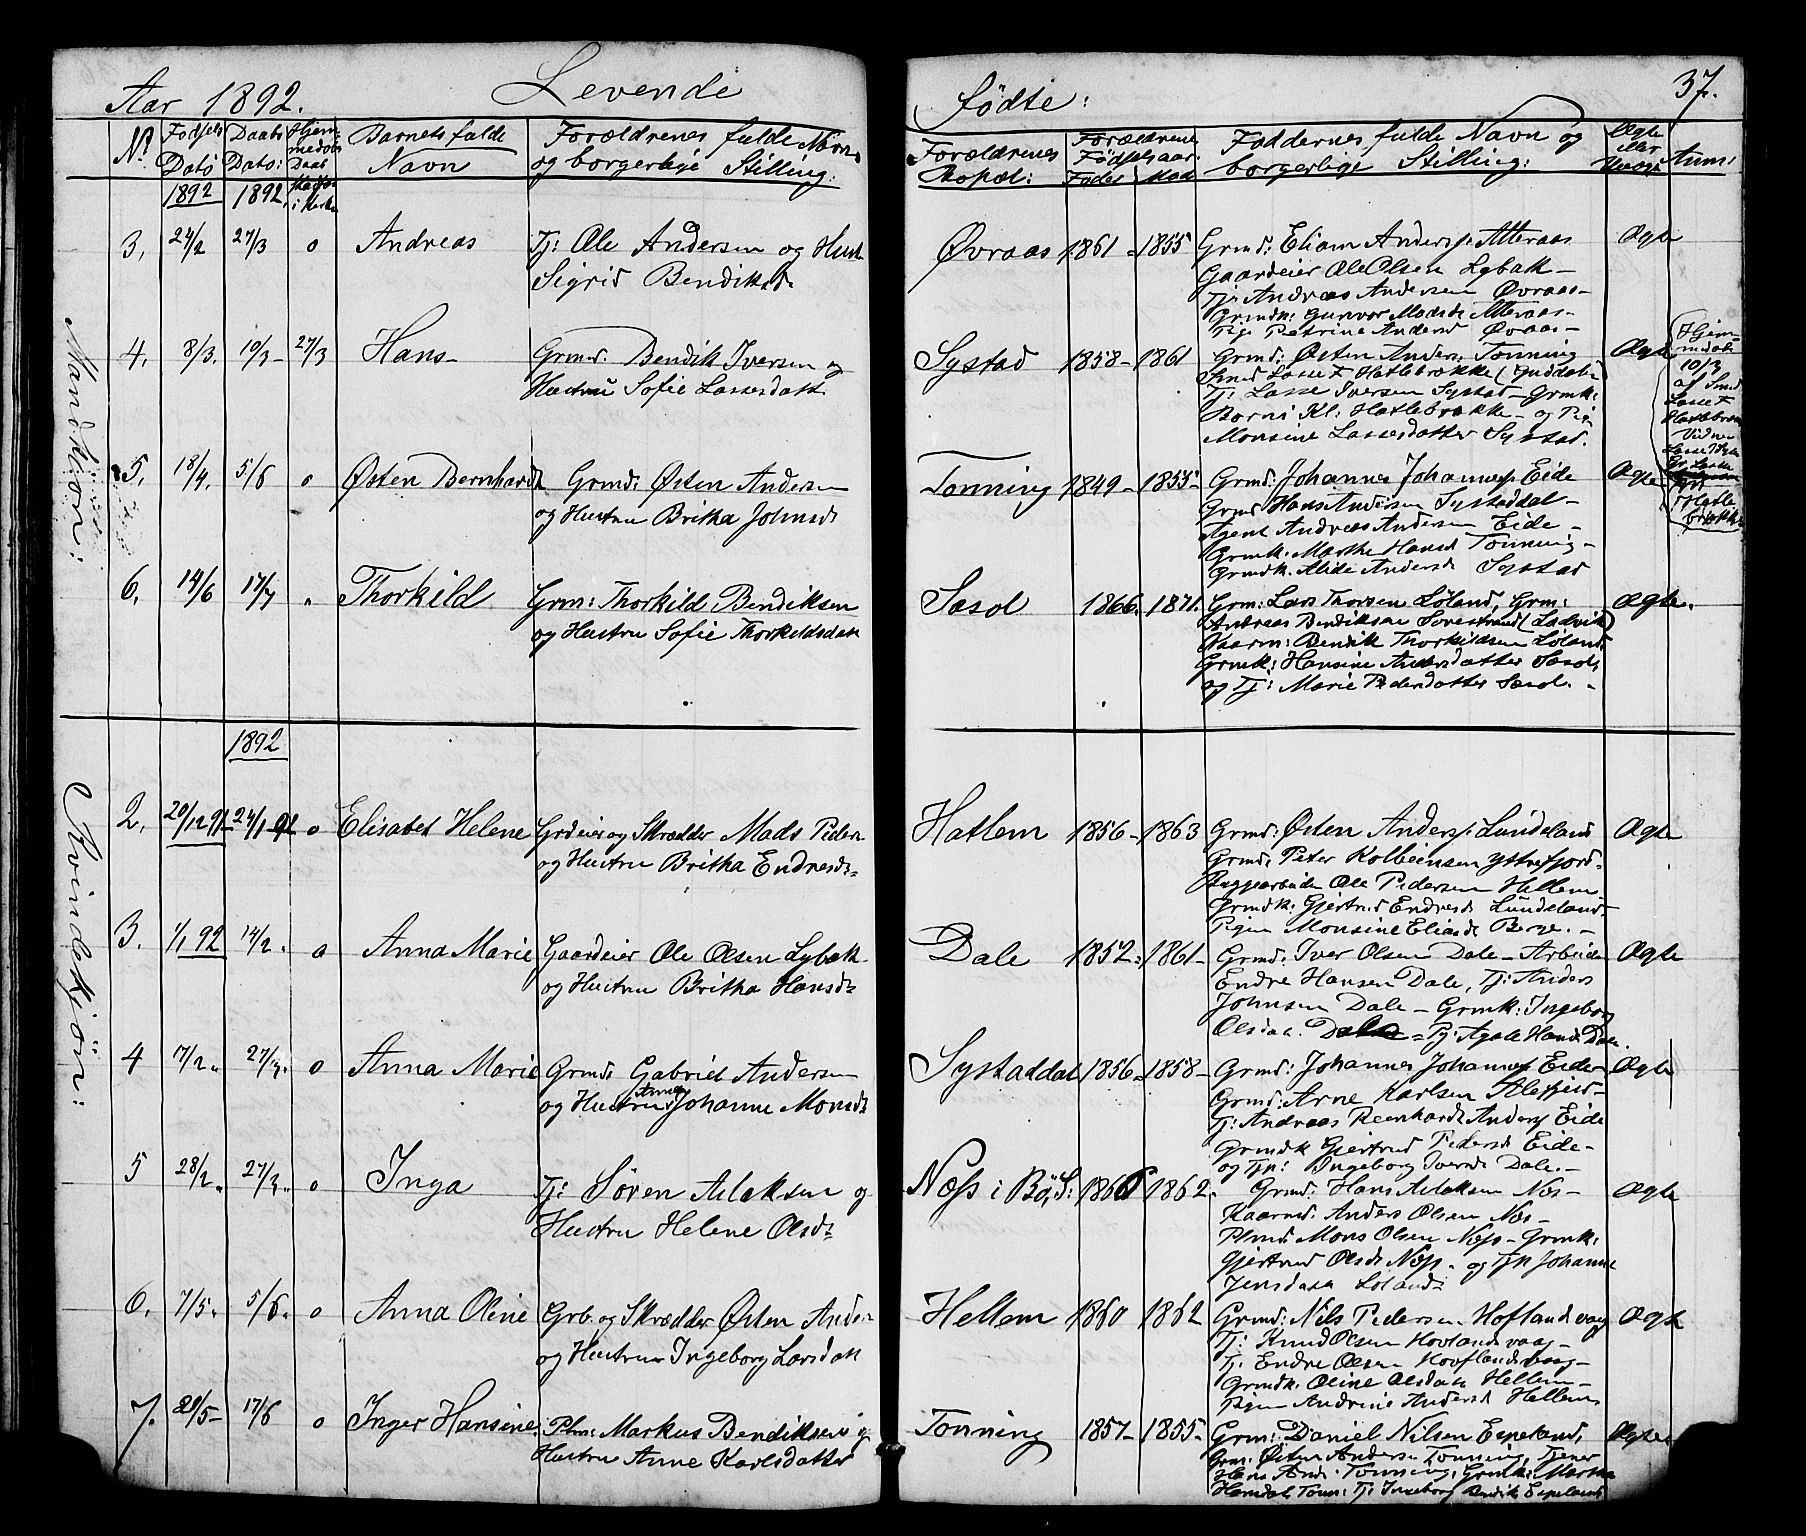 Aar 1892. Levende
fødte:
37.
No
Fødsels Dato
Daabs Dato:
Barnets fulde Navn
Forældrenes fulde Navn og borgerlige Stilling:
Forældrenes Bopæl:
Forældrene Fødselsaar.
Fader Mod
Fadderne s fulde Navn og borgerlige Stilling:
Ægte eller Uægte
Anm:
1892 1892.
Mandkjøn:
3. 24/2 27/3 o Andreas
Tj: Ole Andersen og Hust
Sigrid Bendiksd.
Øvraas 1861 - 1855
Grmd: Eliam Anders: Atteraas
Gaardeier Ole Olsen Lybak -
Tj: Andreas Andersen Øvraas -
Grmdk: Gunvor Madsd. Atteraas -
Pige Petrine Andersd Øvraas -
Ægte
4. 8/3. 10/3 - 27/3 Hans -
Grmd: Bendik Iversen og
Hustru Sofie Lassesdatt
Systad 1858 - 1861
Grmd: Østen Anders: Tonning
Smed Lasse F Hatlebrække (Guddøbt
Tj: Lasse Iversen Systad - Grmk:
Berni Kl: Hatlebrække - og Pig
Monsine Lassesdatter Systad.
Ægte
Hjem
medøbt
10/3
af Smed
Lasse F
Hatlebræk
Vidner
Hatle
brække
5. 18/4. 5/6 o Østen Bernhardt
Grmd: Østen Andersen
og Hustru Britha Johnsd:
Tonning 1849 - 1855 -
Grmd: Johannes Johannes: Eide
Grmd Hans Andersen Systaddal -
Agent Andreas Andersen Eide -
Grmdk. Marthe Hansd Tonning -
Grmdk. Alide Andersd Systad
Ægte
6. 14/6 17/7 " Thorkild
Grm: Thorkild Bendiksen
og Hustru Sofie Thorkildsdatt
Sæsol 1866. 1871.
Grm: Lars Thorsen Løland, Grm:
Andreas Bendiksen Sørestrand (Ladvik)
Kaarm: Bendik Thorkildsen Løland,
Grmk: Hansine Andersdatter Sæsol,
og Tj: Marie Pedersdatter Sæsol. -
Ægte.
1892
Kvindekjøn:
2. 20/12 91 24/1 92 o Elisabet Helene
Grdeier og Skrædder Mads Peder
og Hustru Britha Endresd:
Hatlem 1856 - 1863
Grmd: Østen Anders: Lundeland
Grmd: Peter Kolbeinsen Yttrefjord -
Byggearbeider Ole Pedersen Hellem
Grmdk: Gjertrud Endresd Lundeland -
Pigen Monsine Eliasd: Berge. -
Ægte
3. 1/1 92 14/2. o Anna Marie
Gaardeier Ole Olsen Lybak
og Hustru Britha Hansd:
Dale 1852 - 1861 -
Grmd: Iver Olsen Dale - Arbeider
Endre Hansen Dale, Tj: Anders
Johnsen Dale - Grmk: Ingeborg
Olsdatt. Dale - Pg: Agate Hansd Dale.
Ægte
4 7/2. 27/3. o Anna Marie
Grmd: Gabriel Andersen
og Hustru Anne Johanne Monsd:
Systaddal 1856 - 1858 -
Grmd: Johannes Johannes: Eide -
Grmd: Arne Karlsen Aleffjerd -
Tj: Andreas Reinhardt Anders: Eide
Grmdk Gjertrud Pedersd Eide -
og Tjn: Ingeborg Iversd: Dale. -
Ægte
5 28/2. 27/3. o Inga
Tj: Søren Aslaksen og
Hustru Helene Olsd:
Næss i Bø, S: 1866 1862.
Grmd: Hans Aslaksen Næs -
Kaarmd: Anders Olsen Næs -
Plmd Mons Olsen Næss - Grmk:
Gjertrud Olsd: Næss - og Tjn Johanne
Jensdatt Løland:
Ægte
6. 7/5. 5/6. o Anna Oline
Grb. og Skrædder Østen Ander
og Hustru Ingeborg Larsdatt
Hellem 1860 1862
Grmd: Nils Pedersen Hofland vaag
Tj: Knud Olsen Hovlands vaag -
Tj. Endre Olsen Hoflandsvaag -
Grmdk. Oline Olsdatt Hellem -
Pigen Andrine Andersd Hellem
Ægte
7. 29/5 - 17/6 o Inger Hansine
Plm: Markus Bendiksen og
Hustru Anne Karlsdatter
Tonning 1857 - 1855 -
Grm: Daniel Nilsen Espeland,
Grm: Østen Andersen Tonning, Tjener
Hans Ands: Tonning, Grmk: Martha
Hansdatt Tonn: Tj: Ingeborg Bendiks Espeland
Ægte.